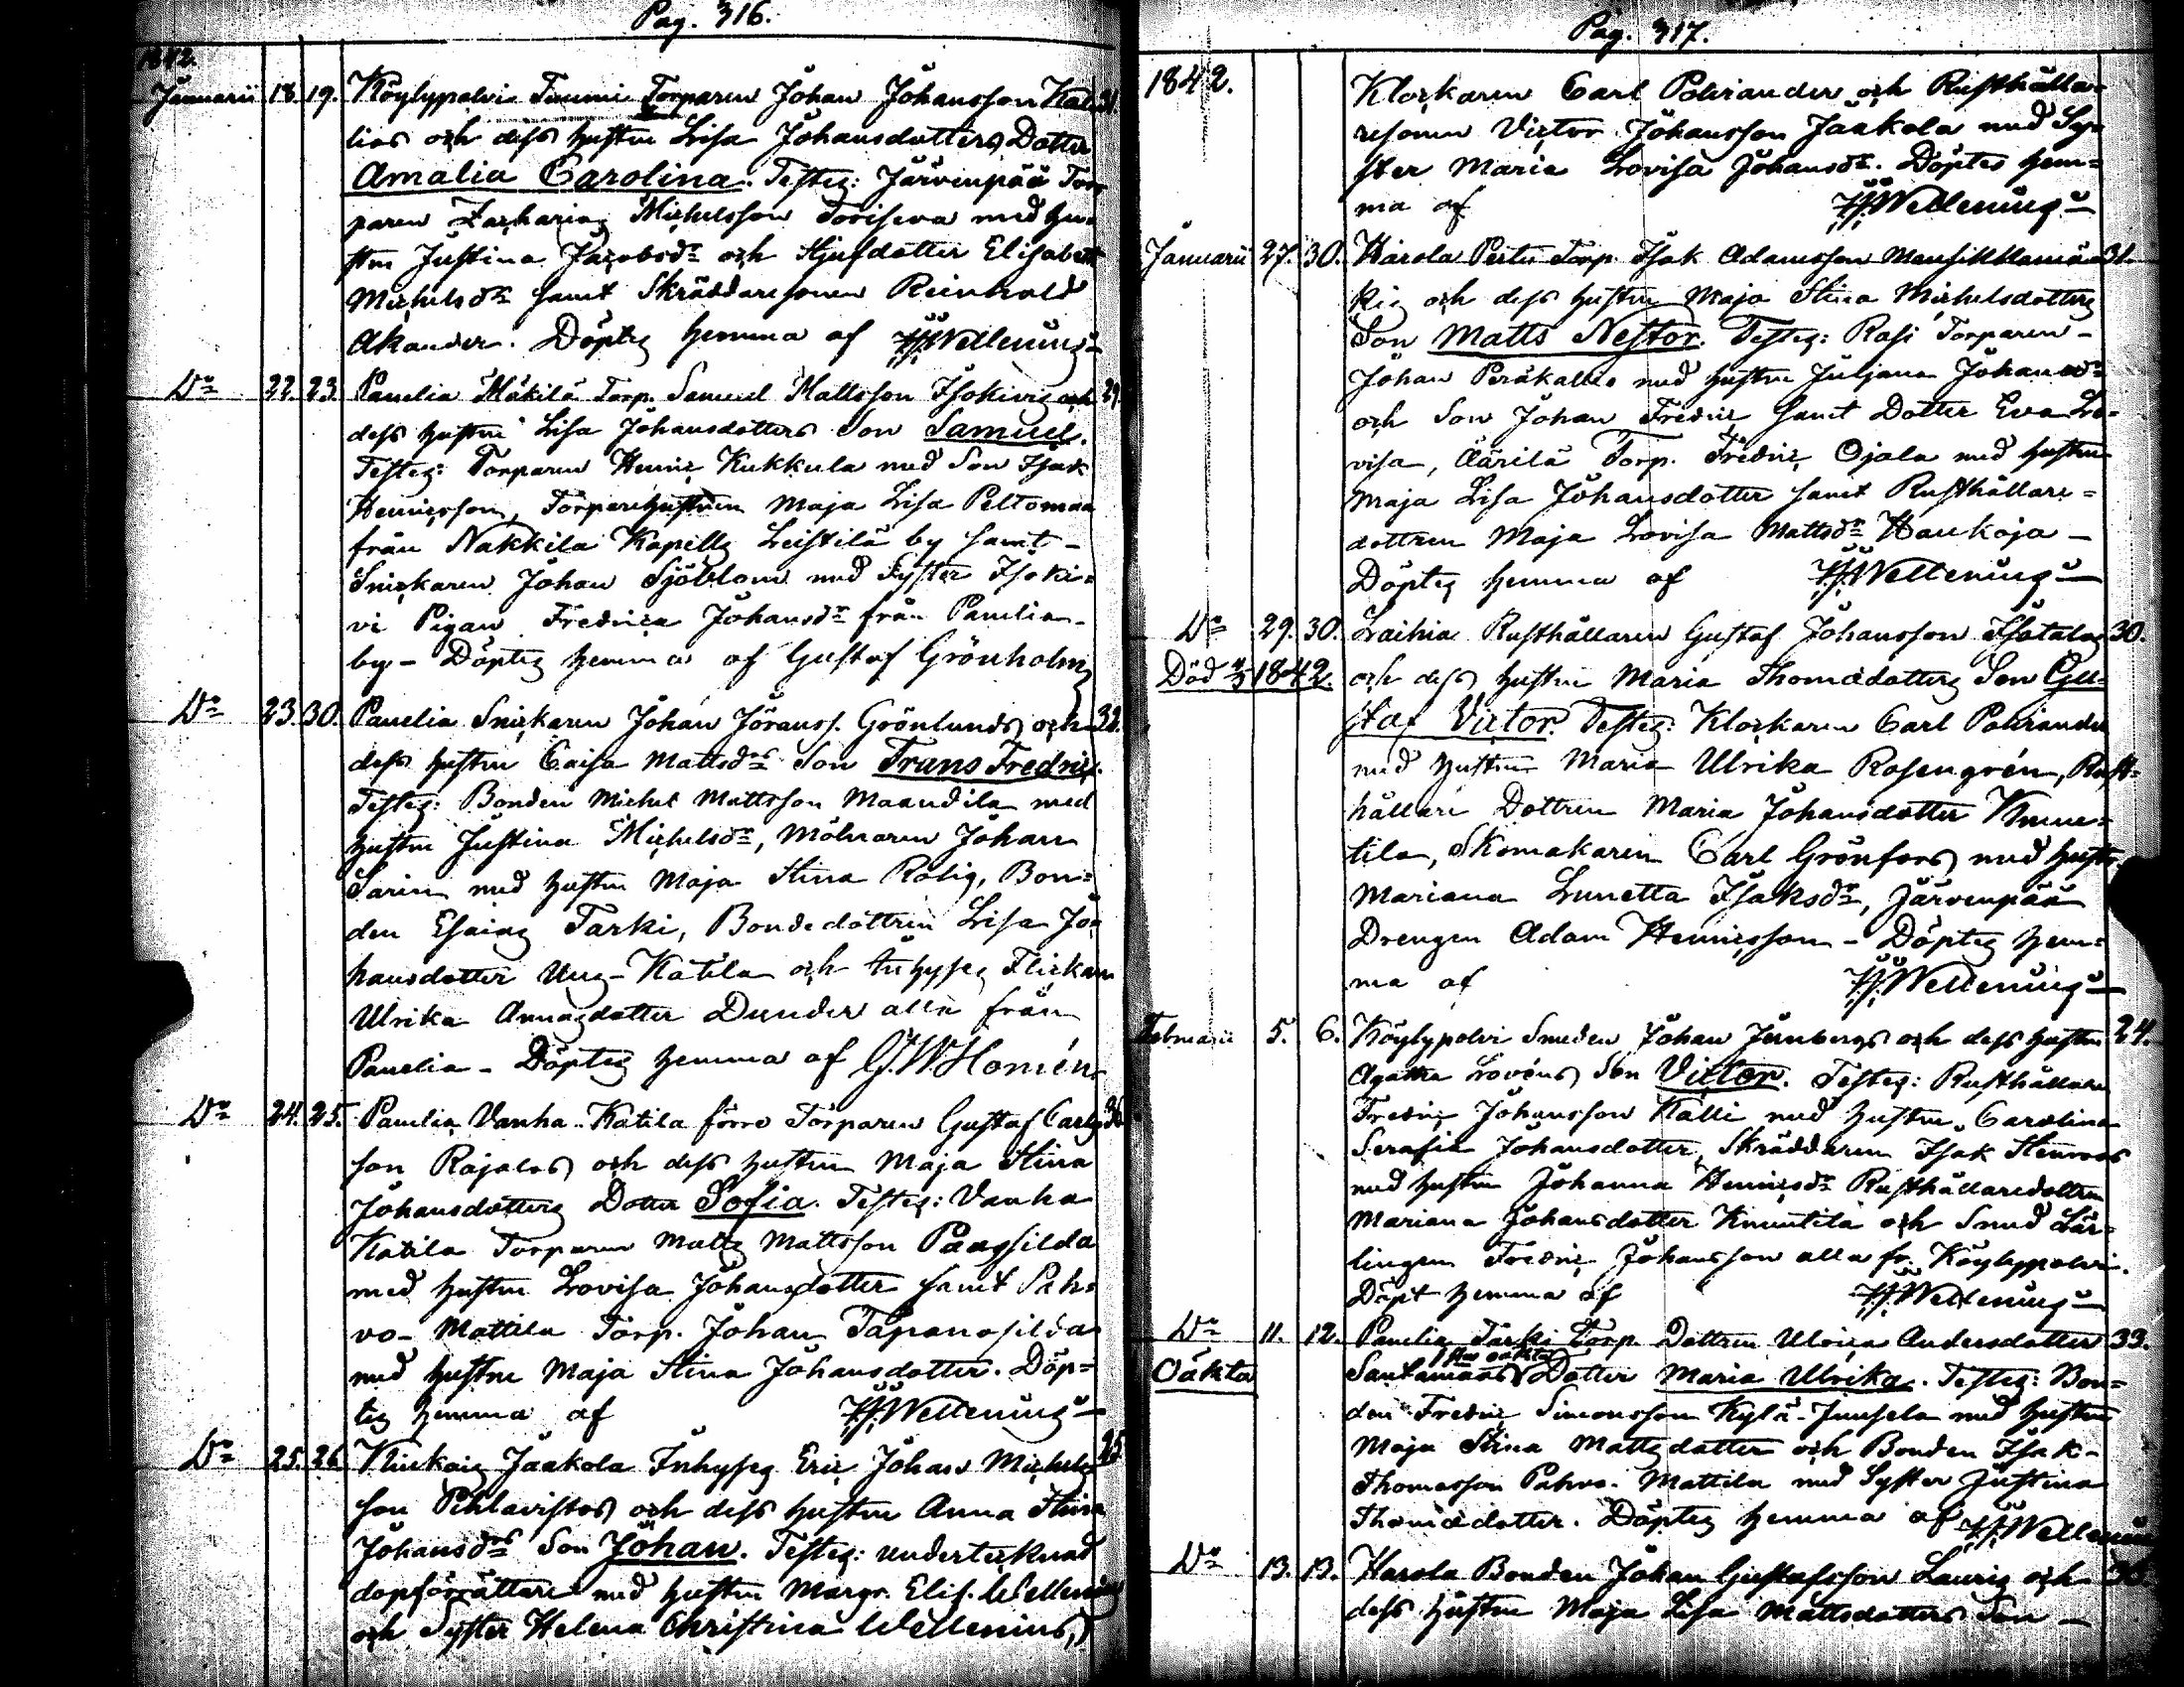 Pag. 316.
1842.
Januarii 18. 19. Köylypolvis Tuumi Torparen Johan Johansson Kal 31.
lios och dess hustru Lisa Johansdotters Dotter
Amalia Carolina. Testes: Järvenpää Tor
paren Zacharias Michelsson med hu
stru Justina Jacobsdr och Stjufdotter Elisabeth
Michelsdr samt Skräddaresonen Reinhold
Akander. Döptes hemma af HHWellenius
Do 22. 23. Panelia Mäkilä Torp. Samuel Mattsson Isokivis och 29.
dess hustru Lisa Johansdotters Son Samuel.
Testes: Torparen Henric Kukkula med Son Isak
Henricsson, Torparehustrun Maja Lisa Peltomaa
från Nakkila Kapells Leistilä by samt
Snickaren Johan Sjöblom med Syster Isoki=
vi Pigan Fredrica Johansdr från Panelia
by – Döptes hemma af Gustaf Grönholm
Do 23. 30. Panelia Snickaren Johan Jöranss. Grönlunds och 32.
dess hustru Caisa Mattsdrs Son Frans Fredric.
Testes: Bonden Michel Mattsson Maandila med
hustru Justina Michelsdr, Mölnaren Johan
Sarin med hustru Maja Stina Rolig, Bon=
den Esaias Tarki, Bondedottren Lisa Jo
hansdotter Uusi-Katila och Inhyses Flickan
Ulrika Annasdotter Dunder alla från
Panelia – Döptes hemma af G.W.Homén
Do 24. 25. Panelia Vanha-Katila förre Torparen Gustaf Carls 36
son Rajalas och dess hustru Maja Stina
Johansdotters Dotter Sofia. Testes: Vanha
Katila Torparen Matts Mattsson Paagsilda
med hustru Lovisa Johansdotter samt Pah=
vo-Mattila Torp. Johan Tapanasilda
med hustru Maja Stina Johansdotter. Döp=
tes hemma af HHWellenius
Do 25. 26. Kiukais Jaakola Inhyses Eric Johan Michels 25
son Pihlavistos och dess hustru Anna Stina
Johansdrs Son Johan. Testes: undertecknad
dopförrättare med hustru Margr. Elis. Wellenius
och Syster Helena Christina Wellenius,
Pag. 317.
1842. Klockaren Carl Polviander och Rusthålla=
resonen Victor Johansson Jaakola med Sy=
ster Maria Lovisa Johansdr. Döptes hem=
ma af HHWellenius
Januarii 27. 30. Harola Pertu Torp. Isak Adamsson Mansikkamä 31.
kis och dess hustru Maja Stina Michelsdotters
Son Matts Nestor. Testes: Rasi Torparen
Johan Peräkallio med hustru Juliana Johansdr
och Son Johan Fredric samt Dotter Eva Lo=
visa, Äärilä Torp. Fredric Ojala med hustru
Maja Lisa Johansdotter samt Rusthållare=
dottren Maja Lovisa Mattsdr Haukoja –
Döptes hemma af HHWellenius
Do 29. 30. Laihia Rusthållaren Gustaf Johansson Isotalos 30.
Död 1842. och dess hustru Maria Thomædotters Son Gu=
staf Victor. Testes: Klockaren Carl Polviander
med hustru Maria Ulrika Rosengrén, Rust=
hållare Dottren Maria Johansdotter Knuu=
tila, Skomakaren Carl Grönfors med hustr.
Mariana Lunetta Isaksdr, Järvenpää
Drengen Adam Henricsson – Döptes hem=
ma af HHWellenius
Februarii 5. 6. Köylypolvi Smeden Johan Jernbergs och dess hustru 24.
Agatha Lovéns Son Victor. Testes: Rusthållaren
Fredric Johansson Kalli med hustru Carolina
Serafia Johansdotter, Skräddaren Isak Stenroos
med hustru Johanna Henricsdr Rusthållaredottren
Mariana Johansdotter Knuutila och Smed Lär=
lingen Fredric Johansson alla fr. Köylypolvi.
Döpt hemma af HHWellenius
Do 11. 12. Panelia Tarki Torp. Dottren Ulrica Andersdotter 33.
Oäkta Santamaas oäkta Dotter Maria Ulrika. Testes: Bon=
den Fredric Simonsson Kylä-Junsela med hustru
Maja Stina Mattsdotter och Bonden Isak
Thomasson Pahvo-Mattila med Syster Justina
Thomædotter. Döptes hemma af HHWellenius
Do 13. 13. Harola Bonden Johan Gustafsson Lauris och 36.
dess hustru Maja Lisa Mattsdotters Son –